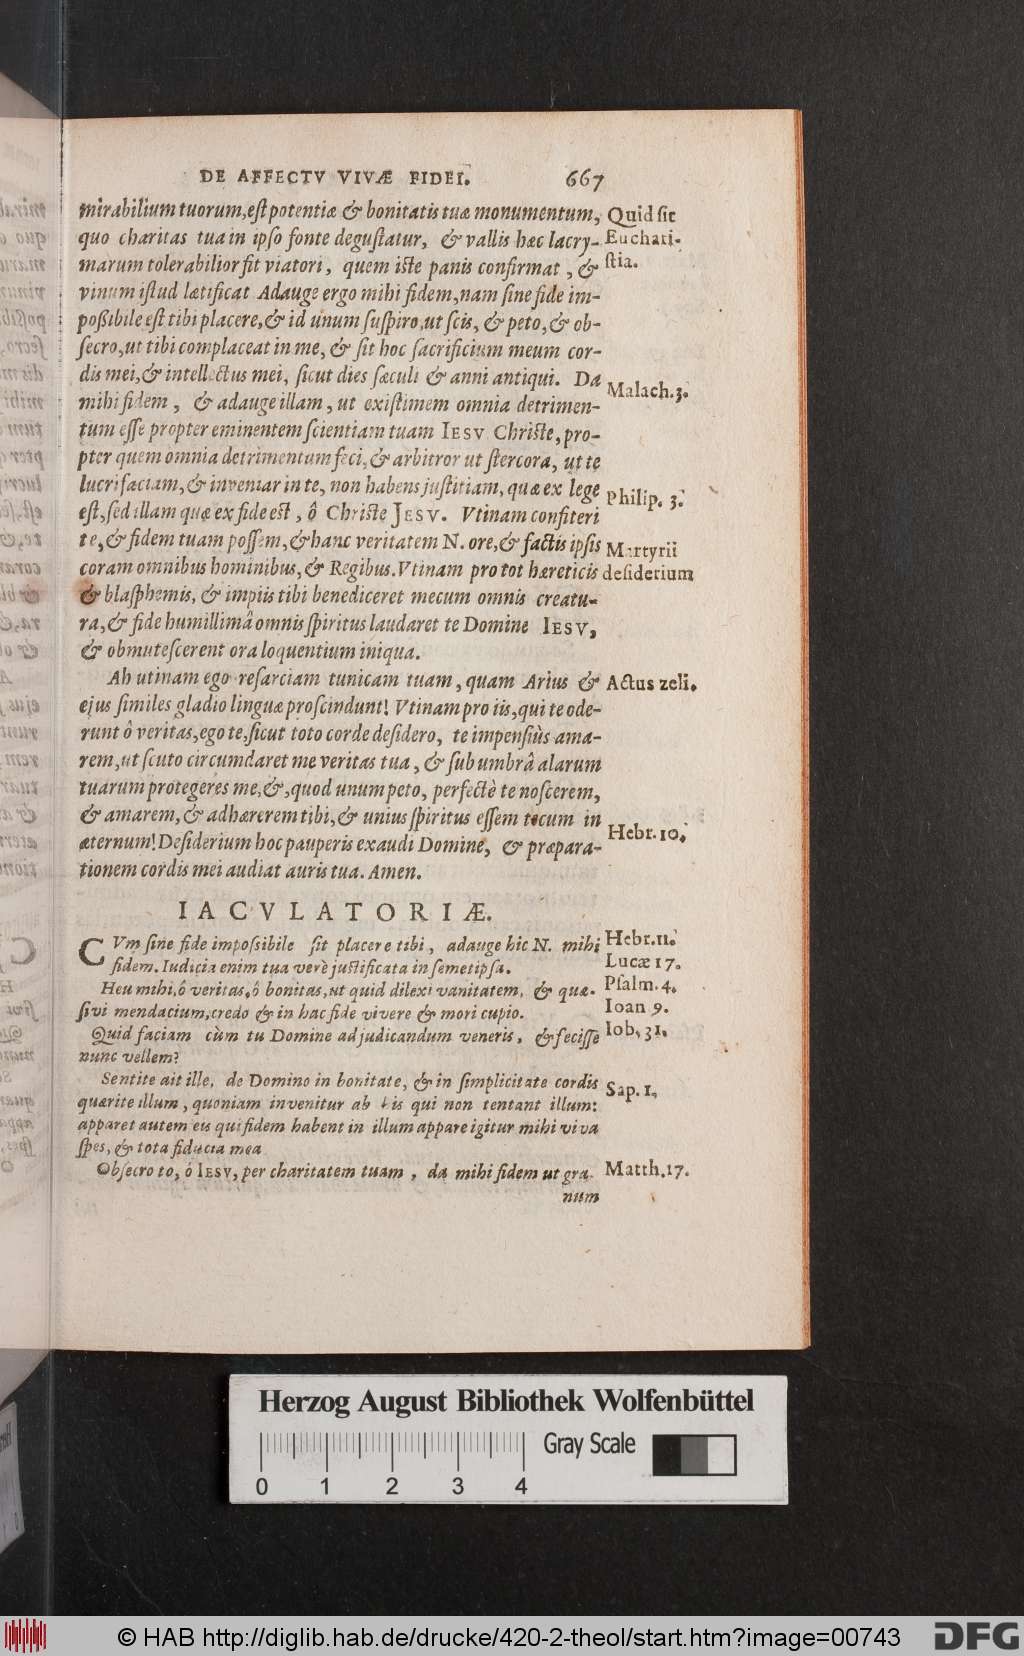 DE AFFECTV VIVÆ FIDEI. 667
mirabilium tuorum, est potentiæ & bonitatis tuæ monumentum, Quid sit
quo charitas tua in ipso fonte degustatur, & vallis hæc lacry- Euchari-
marum tolerabilior fit viatori, quem iste panis confirmat, & stia.
vinum istud lætificat Adauge ergo mihi fidem, nam sine fide im-
poßibile est tibi placere, & id unum suspiro, ut scis, & peto, & ob-
secro, ut tibi complaceat in me, & sit hoc sacrificium meum cor-
dis mei, & intellectus mei, sicut dies sæculi & anni antiqui. Da Malach. 3.
mihi fidem, & adauge illam, ut existimem omnia detrimen-
tum esse propter eminentem scientiam tuam IESV Christe, pro-
pter quem omnia detrimentum feci, & arbitror ut stercora, ut te
lucrifaciam, & inveniar in te, non habens justitiam, quæ ex lege Philip. 3.
est, sed illam quæ ex fide est, ô Christe JESV. Vtinam confiteri
te, & fidem tuam possem, & hanc veritatem N. ore, & factis ipsis Martyrii
coram omnibus hominibus, & Regibus. Vtinam pro tot hæreticis desiderium
& blasphemis, & impiis tibi benediceret mecum omnis creatu-
ra, & fide humillimâ omnis spiritus laudaret te Domine IESV,
& obmutescerent ora loquentium iniqua.
Ah utinam ego resarciam tunicam tuam, quam Arius & Actus zeli.
ejus similes gladio linguæ proscindunt! Vtinam pro iis, qui te ode-
runt ô veritas, ego te, sicut toto corde desidero, te impensiùs ama-
rem, ut scuto circumdaret me veritas tua, & sub umbrâ alarum
tuarum protegeres me, &, quod unum peto, perfectè te noscerem,
& amarem, & adhærerem tibi, & unius spiritus essem tecum in
æternum! Desiderium hoc pauperis exaudi Domine, & præpara- Hebr. 10.
tionem cordis mei audiat auris tua. Amen.
IACVLATORIÆ.
CVm sine fide impossibile sit placere tibi, adauge hic N. mihi Hebr. 11.
fidem. Iudicia enim tua verè justificata in semetipsa. Lucæ 17.
Heu mihi, ô veritas, ô bonitas, ut quid dilexi vanitatem, & quæ- Psalm. 4.
sivi mendacium, credo & in hac fide vivere & mori cupio. Ioan 9.
Quid faciam cùm tu Domine ad judicandum veneris, & fecisse Iob, 31.
nunc vellem?
Sentite ait ille, de Domino in bonitate, & in simplicitate cordis Sap. 1.
quærite illum, quoniam invenitur ab his qui non tentant illum:
apparet autem eis qui fidem habent in illum appare igitur mihi viva
spes, & tota fiducia mea
Obsecro to, ô IESV, per charitatem tuam, da mihi fidem ut gra- Matth. 17.
num
Herzog August Bibliothek Wolfenbüttel
Gray Scale
0 1 2 3 4
© HAB http://diglib.hab.de/drucke/420-2-theol/start.htm?image=00743 DFG